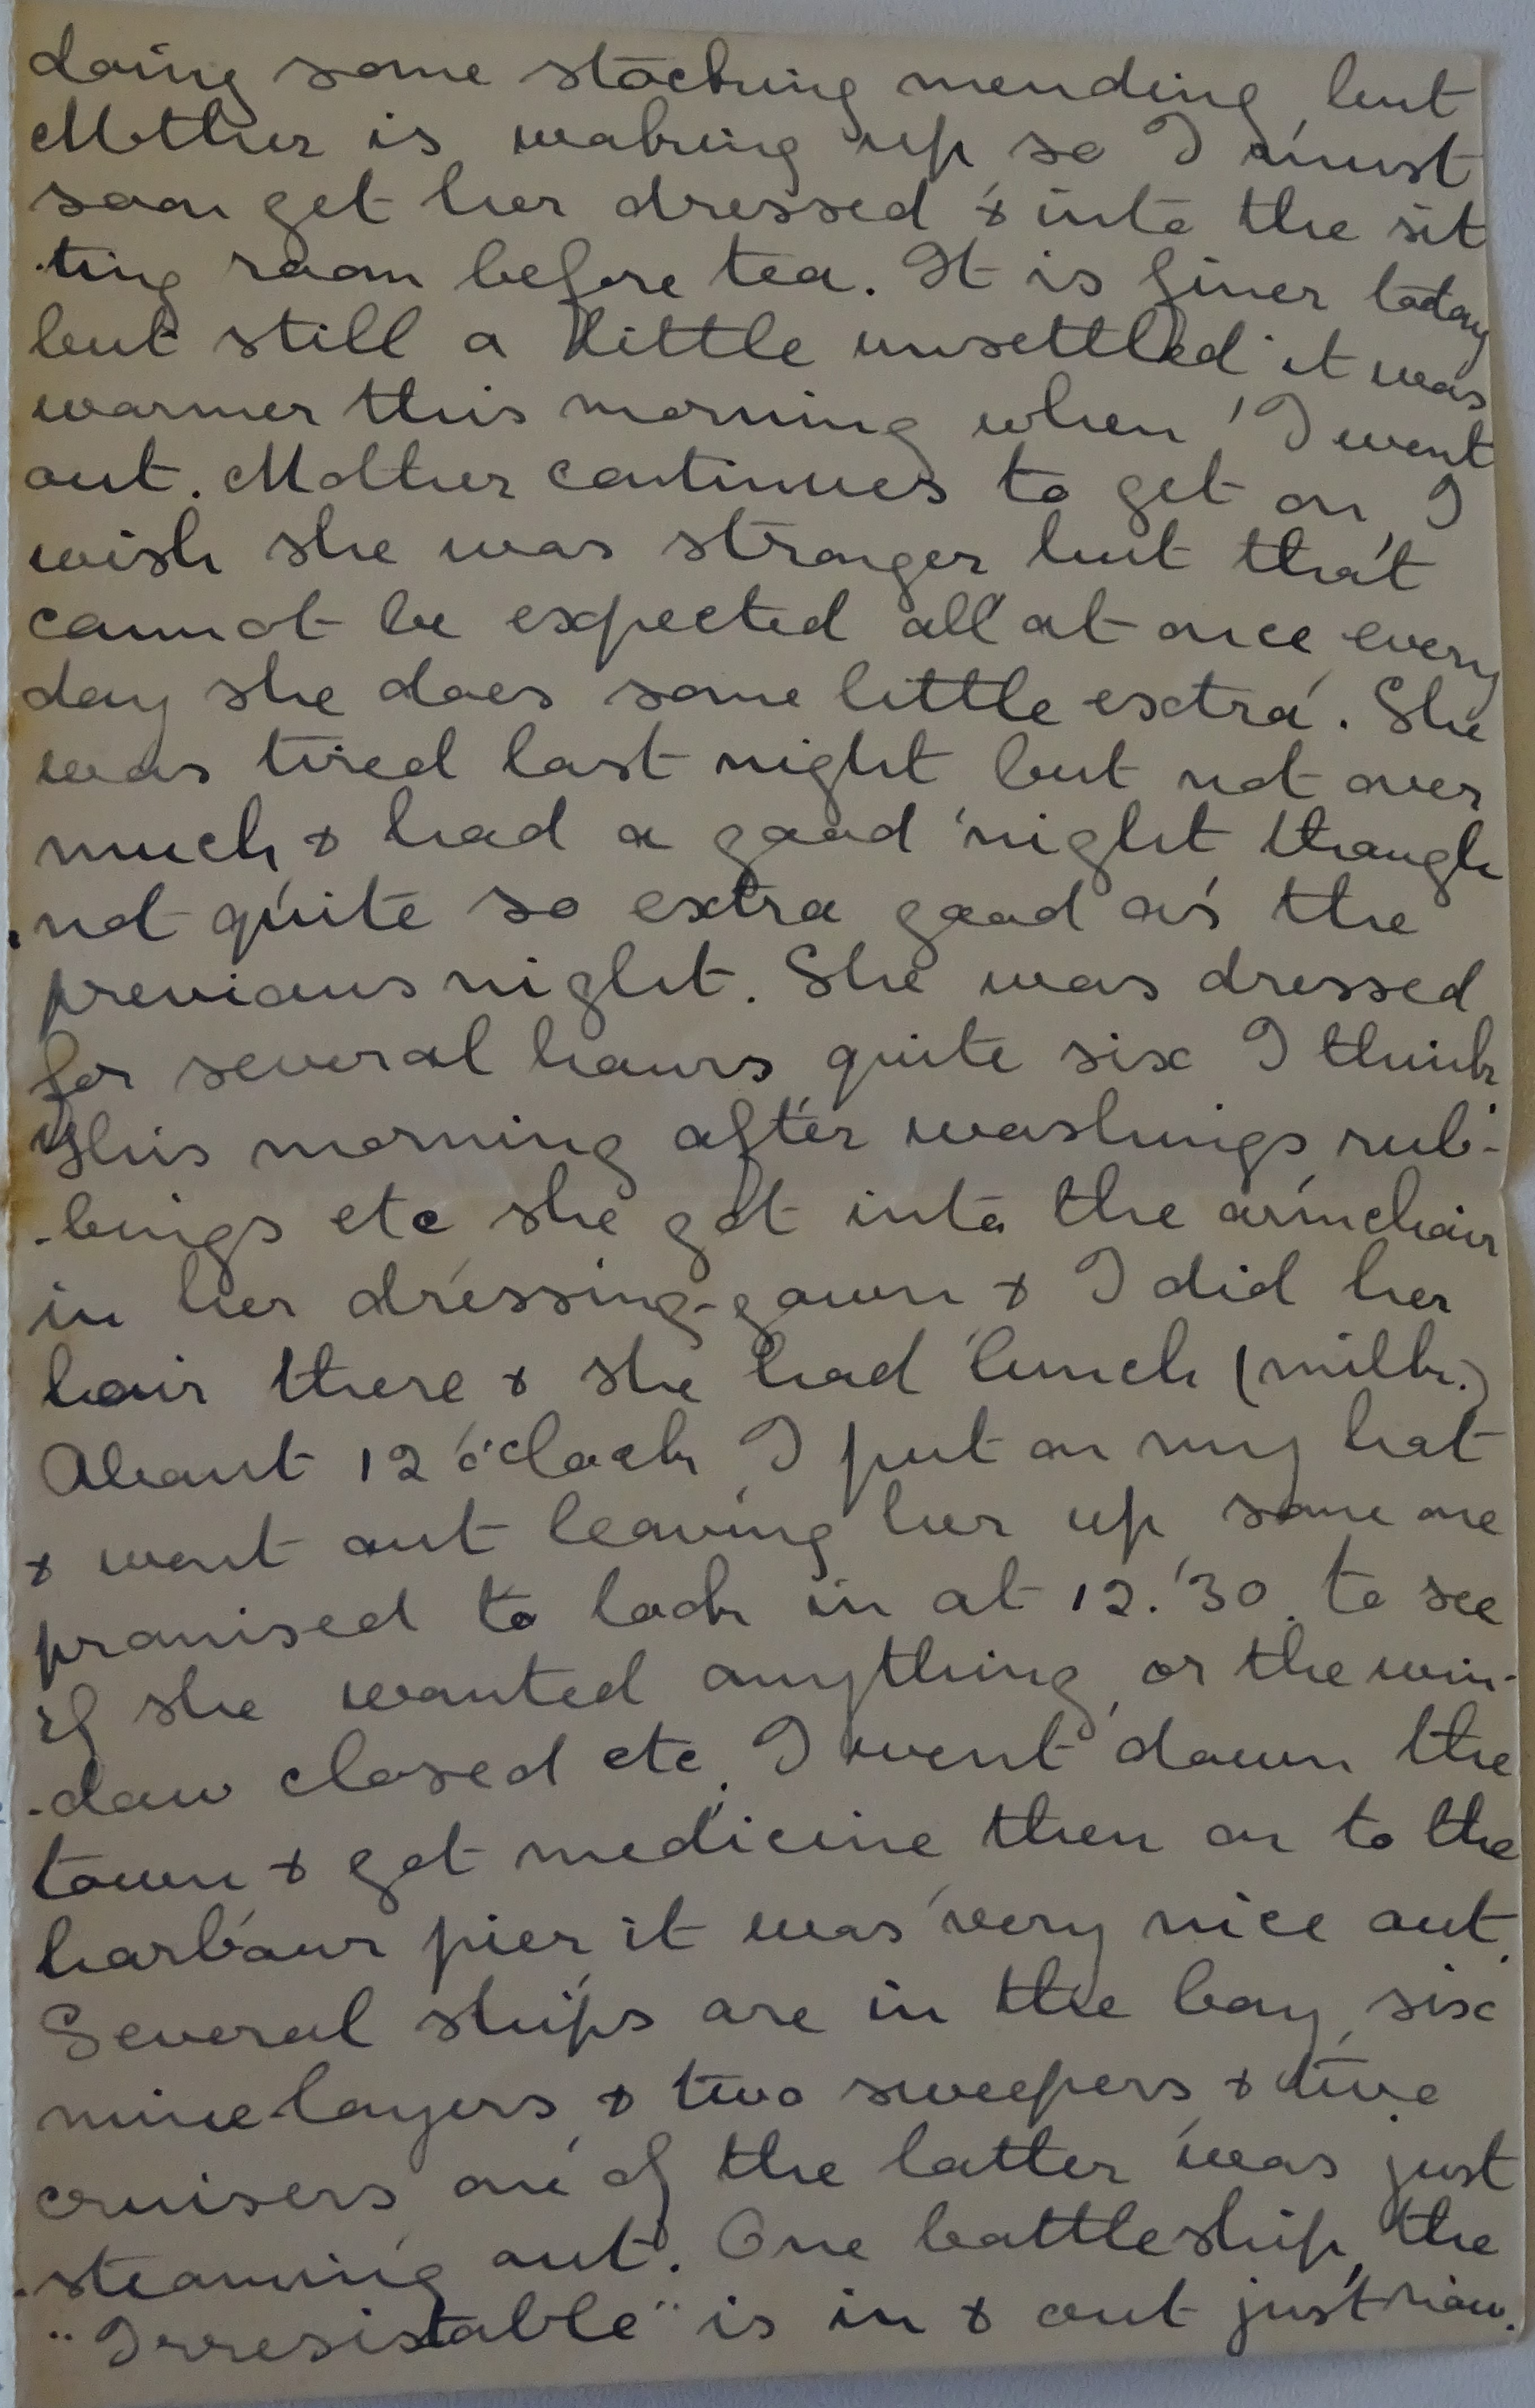 doing some stocking mending, but
Mother is waking up so I must
soon get her dressed & into the sit
-ting room before tea. It is finer today
but still a little unsettled it was
warmer this morning when I went
out. Mother continues to get on, I
wish she was stronger but that
cannot be expected all at once, every
day she does some little extra. She
was tired last night but not over
much, & had a good night though
not quite so extra good as the
previous night. She was dressed
for several hours quite six I think.
This morning after washings, rub-
-bings etc she got into the armchair
in her dressing-gown & I did her
hair there & she had lunch (milk.)
About 12 o'clock I put on my hat
& went out leaving her up, some one
promised to look in at 12.30. to see
if she wanted anything, or the win-
-dow closed etc. I went down the
town & got medicine then on to the
harbour pier, it was very nice out.
Several ships are in the bay, six
mine-layers & two sweepers & two
cruisers one of the latter was just
steaming out. One battleship, the
"Irresistable" is in & out just now.